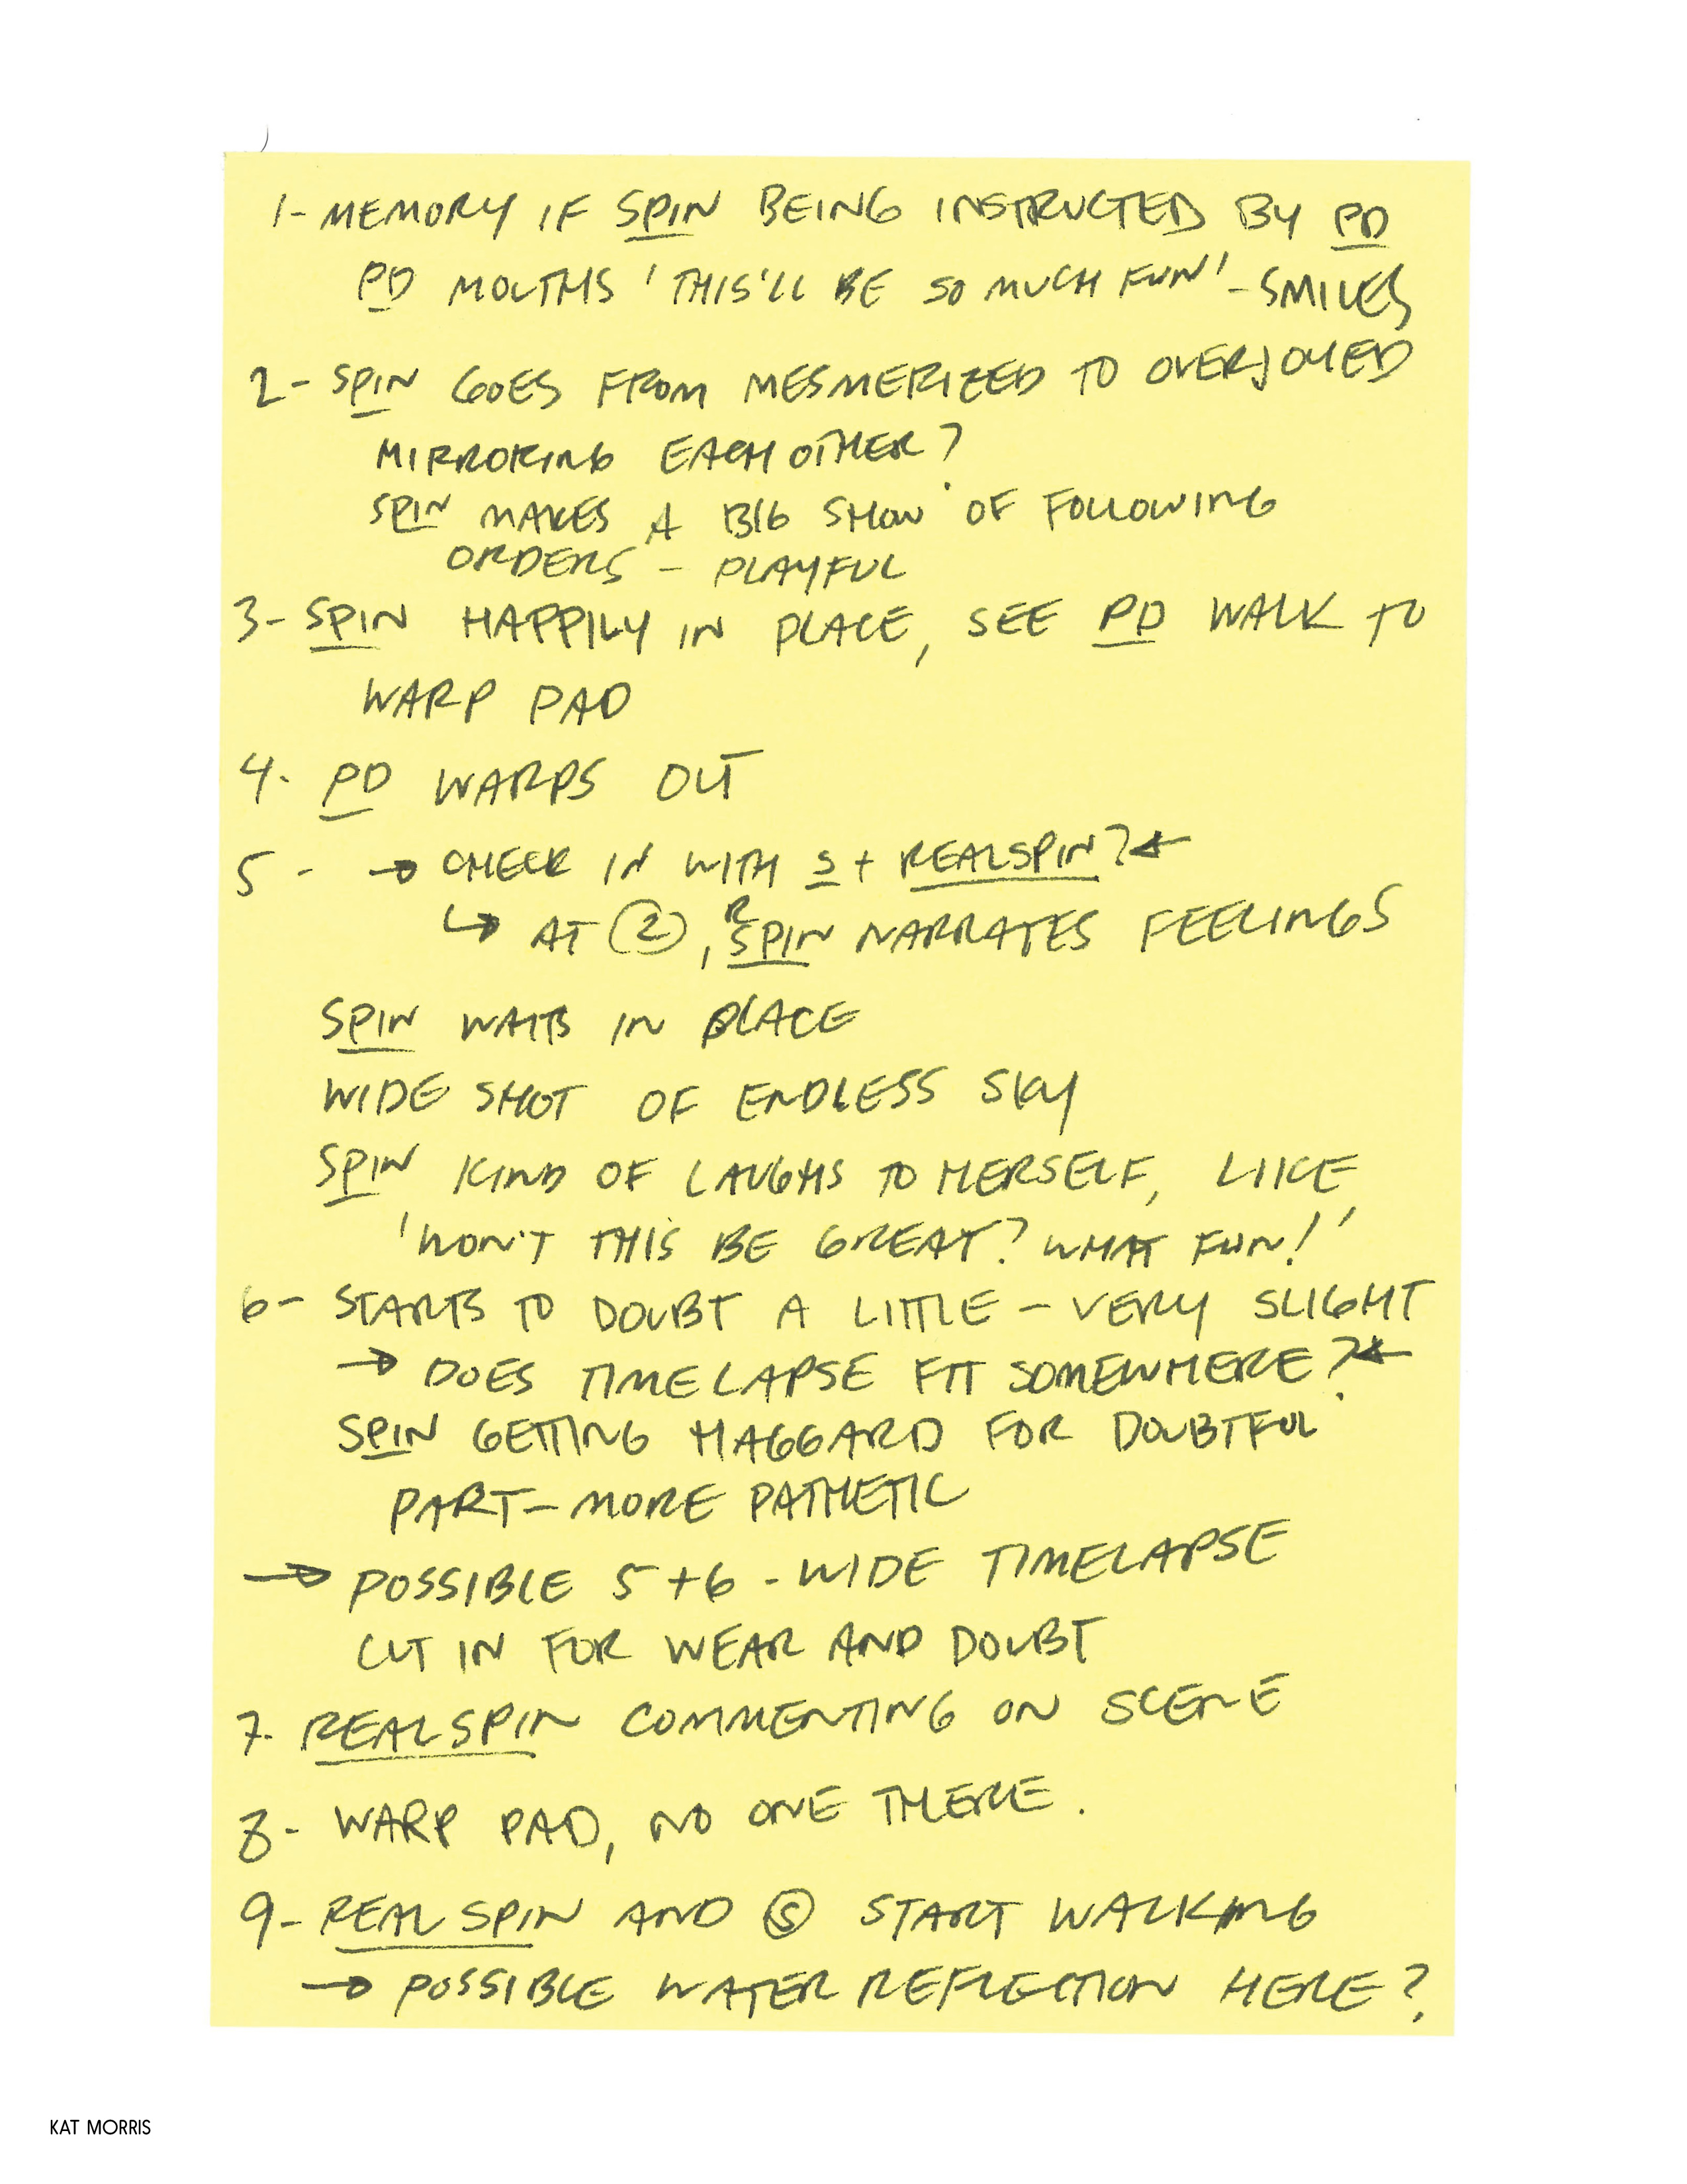 1- MEMORY IF SPIN BEING INSTRUCTED BY PD
PD MOUTHS 'THIS'LL BE SO MUCH FUN' - SMILES
2- SPIN GOES FROM MESMERIZED TO OVERJOYED
MIRRORING EACH OTHER?
SPIN MAKES A BIG SHOW OF FOLLOWING
ORDERS - PLAYFUL
3- SPIN HAPPILY IN PLACE, SEE PD WALK TO
WARP PAD
4- PD WARPS OUT
5 - → CHECK IN WITH S + REALSPIN? ←
↳ AT ②, R SPIN NARRATES FEELINGS
SPIN WAITS IN PLACE
WIDE SHOT OF ENDLESS SKY
SPIN KIND OF LAUGHS TO HERSELF, LIKE
'WON'T THIS BE GREAT? WHAT FUN!'
6- STARTS TO DOUBT A LITTLE - VERY SLIGHT
→ DOES TIMELAPSE FIT SOMEWHERE? ←
SPIN GETTING HAGGARD FOR DOUBTFUL
PART - MORE PATHETIC
→ POSSIBLE 5+6 - WIDE TIMELAPSE
CUT IN FOR WEAR AND DOUBT
7- REALSPIN COMMENTING ON SCENE
8- WARP PAD, NO ONE THERE.
9- REALSPIN AND Ⓢ START WALKING
→ POSSIBLE WATER REFLECTION HERE?
KAT MORRIS